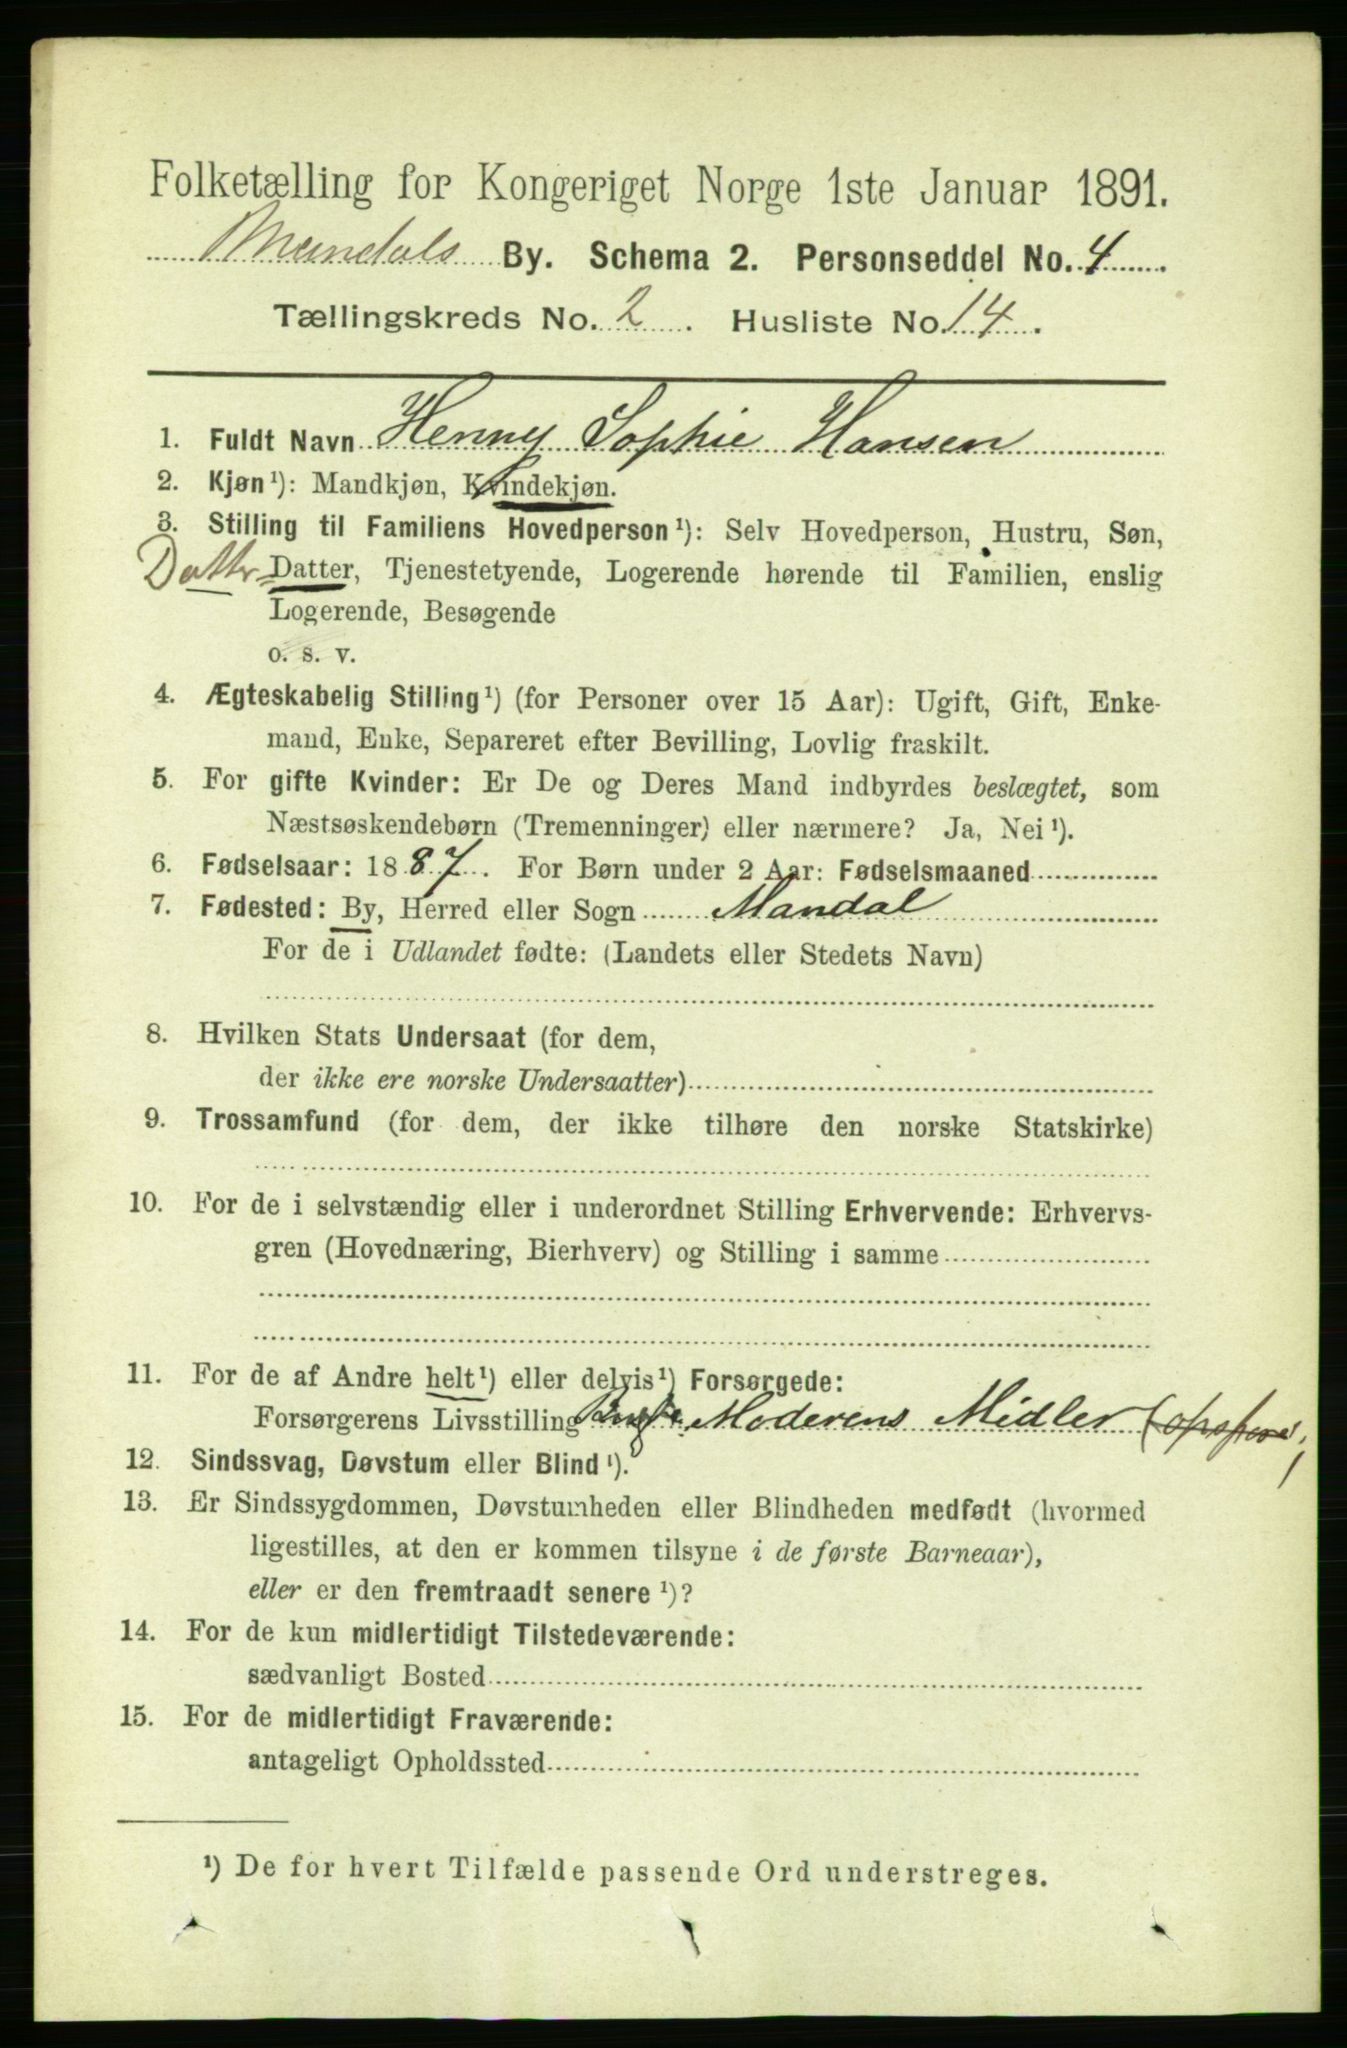 Folketælling for Kongeriget Norge 1ste Januar 1891.
Mandals By. Schema 2. Personseddel No. 4
Tællingskreds No. 2. Husliste No. 14.
1. Fuldt Navn Henny Sophie Hansen
2. Kjøn¹): Mandkjøn, Kvindekjøn.
3. Stilling til Familiens Hovedperson¹): Selv Hovedperson, Hustru, Søn,
Datter Datter, Tjenestetyende, Logerende hørende til Familien, enslig
Logerende, Besøgende
o. s. v.
4. Ægteskabelig Stilling¹) (for Personer over 15 Aar): Ugift, Gift, Enke-
mand, Enke, Separeret efter Bevilling, Lovlig fraskilt.
5. For gifte Kvinder: Er De og Deres Mand indbyrdes beslægtet, som
Næstsøskendebørn (Tremenninger) eller nærmere? Ja, Nei¹).
6. Fødselsaar: 1887. For Børn under 2 Aar: Fødselsmaaned
7. Fødested: By, Herred eller Sogn Mandal
For de i Udlandet fødte: (Landets eller Stedets Navn)
8. Hvilken Stats Undersaat (for dem,
der ikke ere norske Undersaatter)
9. Trossamfund (for dem, der ikke tilhøre den norske Statskirke)
10. For de i selvstændig eller i underordnet Stilling Erhvervende: Erhvervs-
gren (Hovednæring, Bierhverv) og Stilling i samme
11. For de af Andre helt¹) eller delvis¹) Forsørgede:
Forsørgerens Livsstilling Moderens Midler
12. Sindssvag, Døvstum eller Blind¹).
13. Er Sindssygdommen, Døvstumheden eller Blindheden medfødt (hvormed
ligestilles, at den er kommen tilsyne i de første Barneaar),
eller er den fremtraadt senere¹)?
14. For de kun midlertidigt Tilstedeværende:
sædvanligt Bosted
15. For de midlertidigt Fraværende:
antageligt Opholdssted
¹) De for hvert Tilfælde passende Ord understreges.